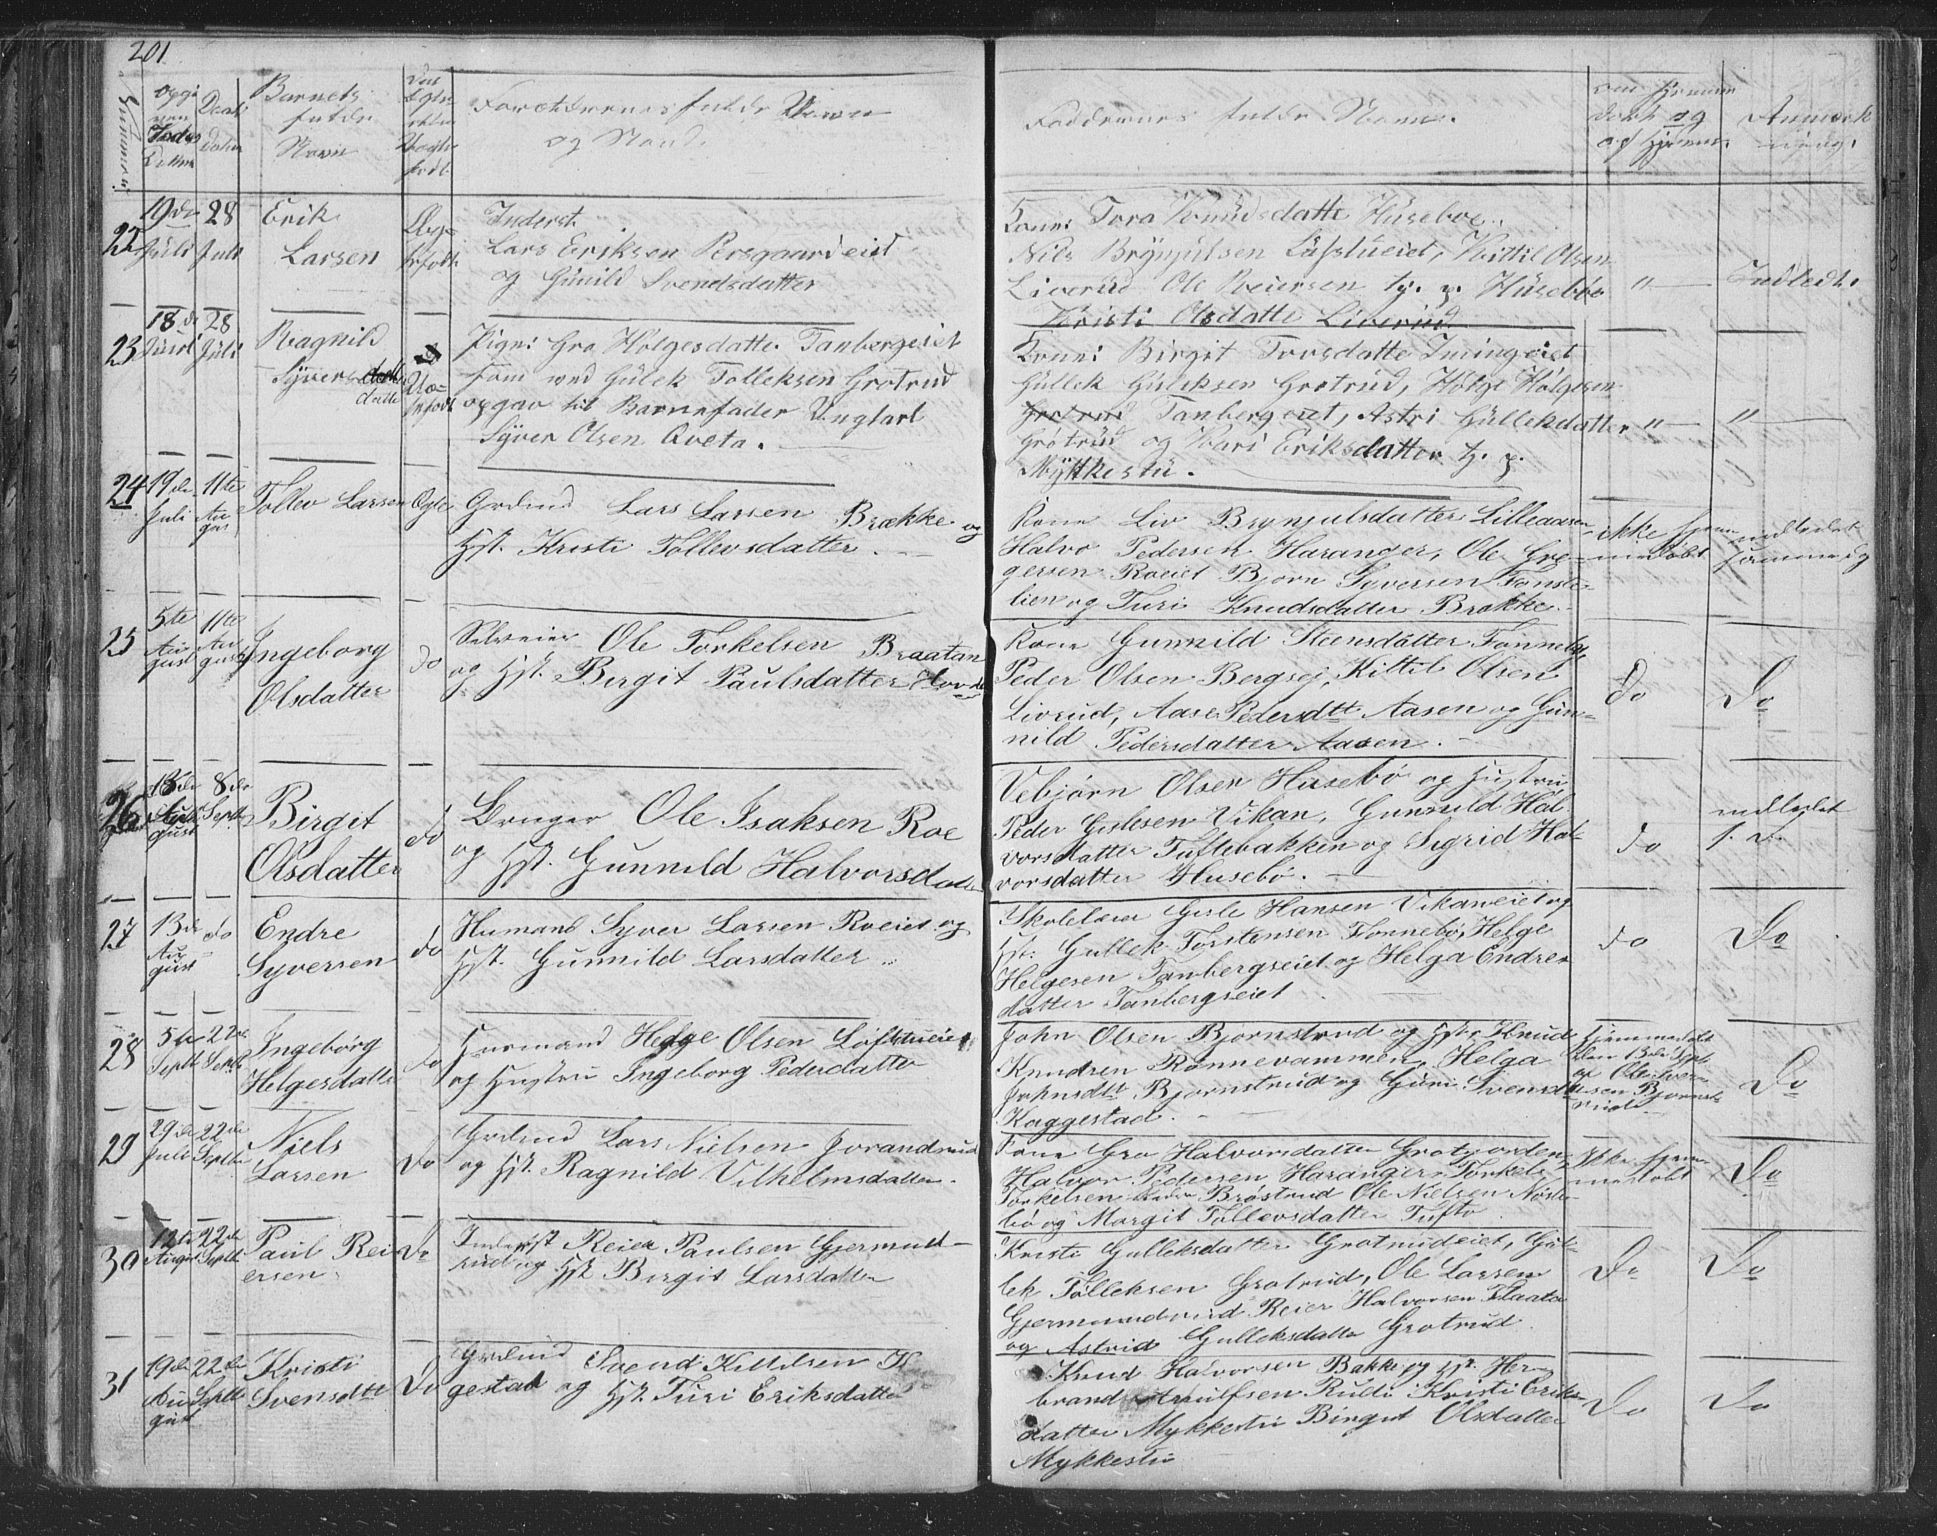 201
Barnets fulde Navn
Forældrenes fulde Navn og Stand.
Faddernes fulde Navne.
22
19de Juli
28 Juli
Erik Larsen
Inderst
Lars Eriksen Persgaardeiet
og Günild Svendsdatter
Kone: Tora Knudsdatte Hüseboe,
Nils Brynjulsen Lüfstueiet, Kittil Olsen
Liverüd Ole Reiersen tj. p. Hüsebøe
Kristi Olsdatte Liverüd
"
Indledt.
23
18de
28 Juli
Ragnild Syversdatte
Uæ
Pige: Gro Holgesdatte Tanbergeiet
som med Gülek Tolleksen Grotrud
opgav til Barnefader Ungkarl
Syver Olsen Qveta.
Kone: Birgit Torsdatte Imingeiet
Güllek Güleksen Grotrüd, Holge Holgesen
Tanbergeiet, Astri Güllekdatter
Grotrüd og Kari Eriksdatter tj. p.
Mykkestü.
"
"
24
19de Juli
11te August
Tollev Larsen
Ægte
Grdmd Lars Larsen Brække og
Hst. Kristi Tollevsdatter.
Kone Liv Brynjulsdatter Lilleaasen
Halvo Pedersen Haranger, Ole Gre-
gersen Roeiet Bjørn Syversen Tonste-
lien og Turi Knudsdatter Brække.
ikke hjem-
medøbt
indledet
hjemme dg
25
5te August
11te August
Ingeborg Olsdatter
do
Selveier Ole Torkelsen Braatan
og Hst. Birgit Paulsdatter Hovde
Kone Gunnild Steensdatter Tønneby
Peder Olsen Bergsej, Kittil Olsen
Livrud, Aase Pedersdtt Aasen og Gun-
nild Pedersdatter Aasen.
do
Do
26
8de Septbr
Birgit Olsdatter
do
Bruger Ole Isaksen Roe
og Hst. Gunnild Halvorsdatter
Vebjørn Olsen Husebø og Hustru
Peder Gislesen Vikan, Gunnild Hal-
vorsdatter Tuftebakken og Sigrid Hal-
vorsdatter Husebø.
do
indledet
s. D.
27
13de August
do
Endre Syversen
do
Husmand Syver Larsen Roeiet og
Hst. Gunnild Larsdatter
Skolelærer Gisle Hansen Vikaneiet og
Hst. Gullek Torstensen Tonnebø, Helge
Helgesen Tanbergseiet og Helga Endres-
datter Tanbergseiet
do
Do
28
5te Septb
22de Septb
Ingebørg Helgesdatter
do
Husmand Helge Olsen Løftstueiet
og Hustru Ingeborg Pedersdatter
John Olsen Bjornstrud og Hst. Knud
Knudsen Rønnevammen, Helga
Johnsdtt Bjørnstrud og Guri Svensdtt
Kaggestad.
hjemmedøbt
den 13de Sept
af Ole Iver-
sen Bjornst-
rud
Do
29
29de Juli
22de Septb
Niels Larsen
Do
Grdmd Lars Nielsen Jorandrud
og Hst. Ragnild Vilhelmsdatter.
Kone Gro Halvorsdatter Grotjorden
Halvor Pedersen Haranger, Torkel
Torkelsen Brøstrud Ole Nielsen Nøste-
bø og Margit Tollevsdatter Tufto
Ikke hjem-
medøbt
Do
30
12te August
22de Septb
Paul Reiersen
Do
Inderst Reier Paulsen Gjermund-
rud og Hst Birgit Larsdatter
Kristi Gulleksdatter Grotrudeiet, Gul-
lek Tolleksen Grotrud, Ole Larsen
Gjermundrud Reier Halvorsen Flaata
og Astrid Gulleksdatter Grotrud
Do
Do
31
19de August
22de Septb
Kristi Svensdtt
Do
Grdmd Svend Kittelsen
gestad og Hst. Turi Eriksdatter
Knud Halvorsen Bakke og Hst. Her-
brand Arnulfsen Rudi Kristi Eriks-
datter Mykkestu Birgit Olsdatter
Mykkestu
Do
Do